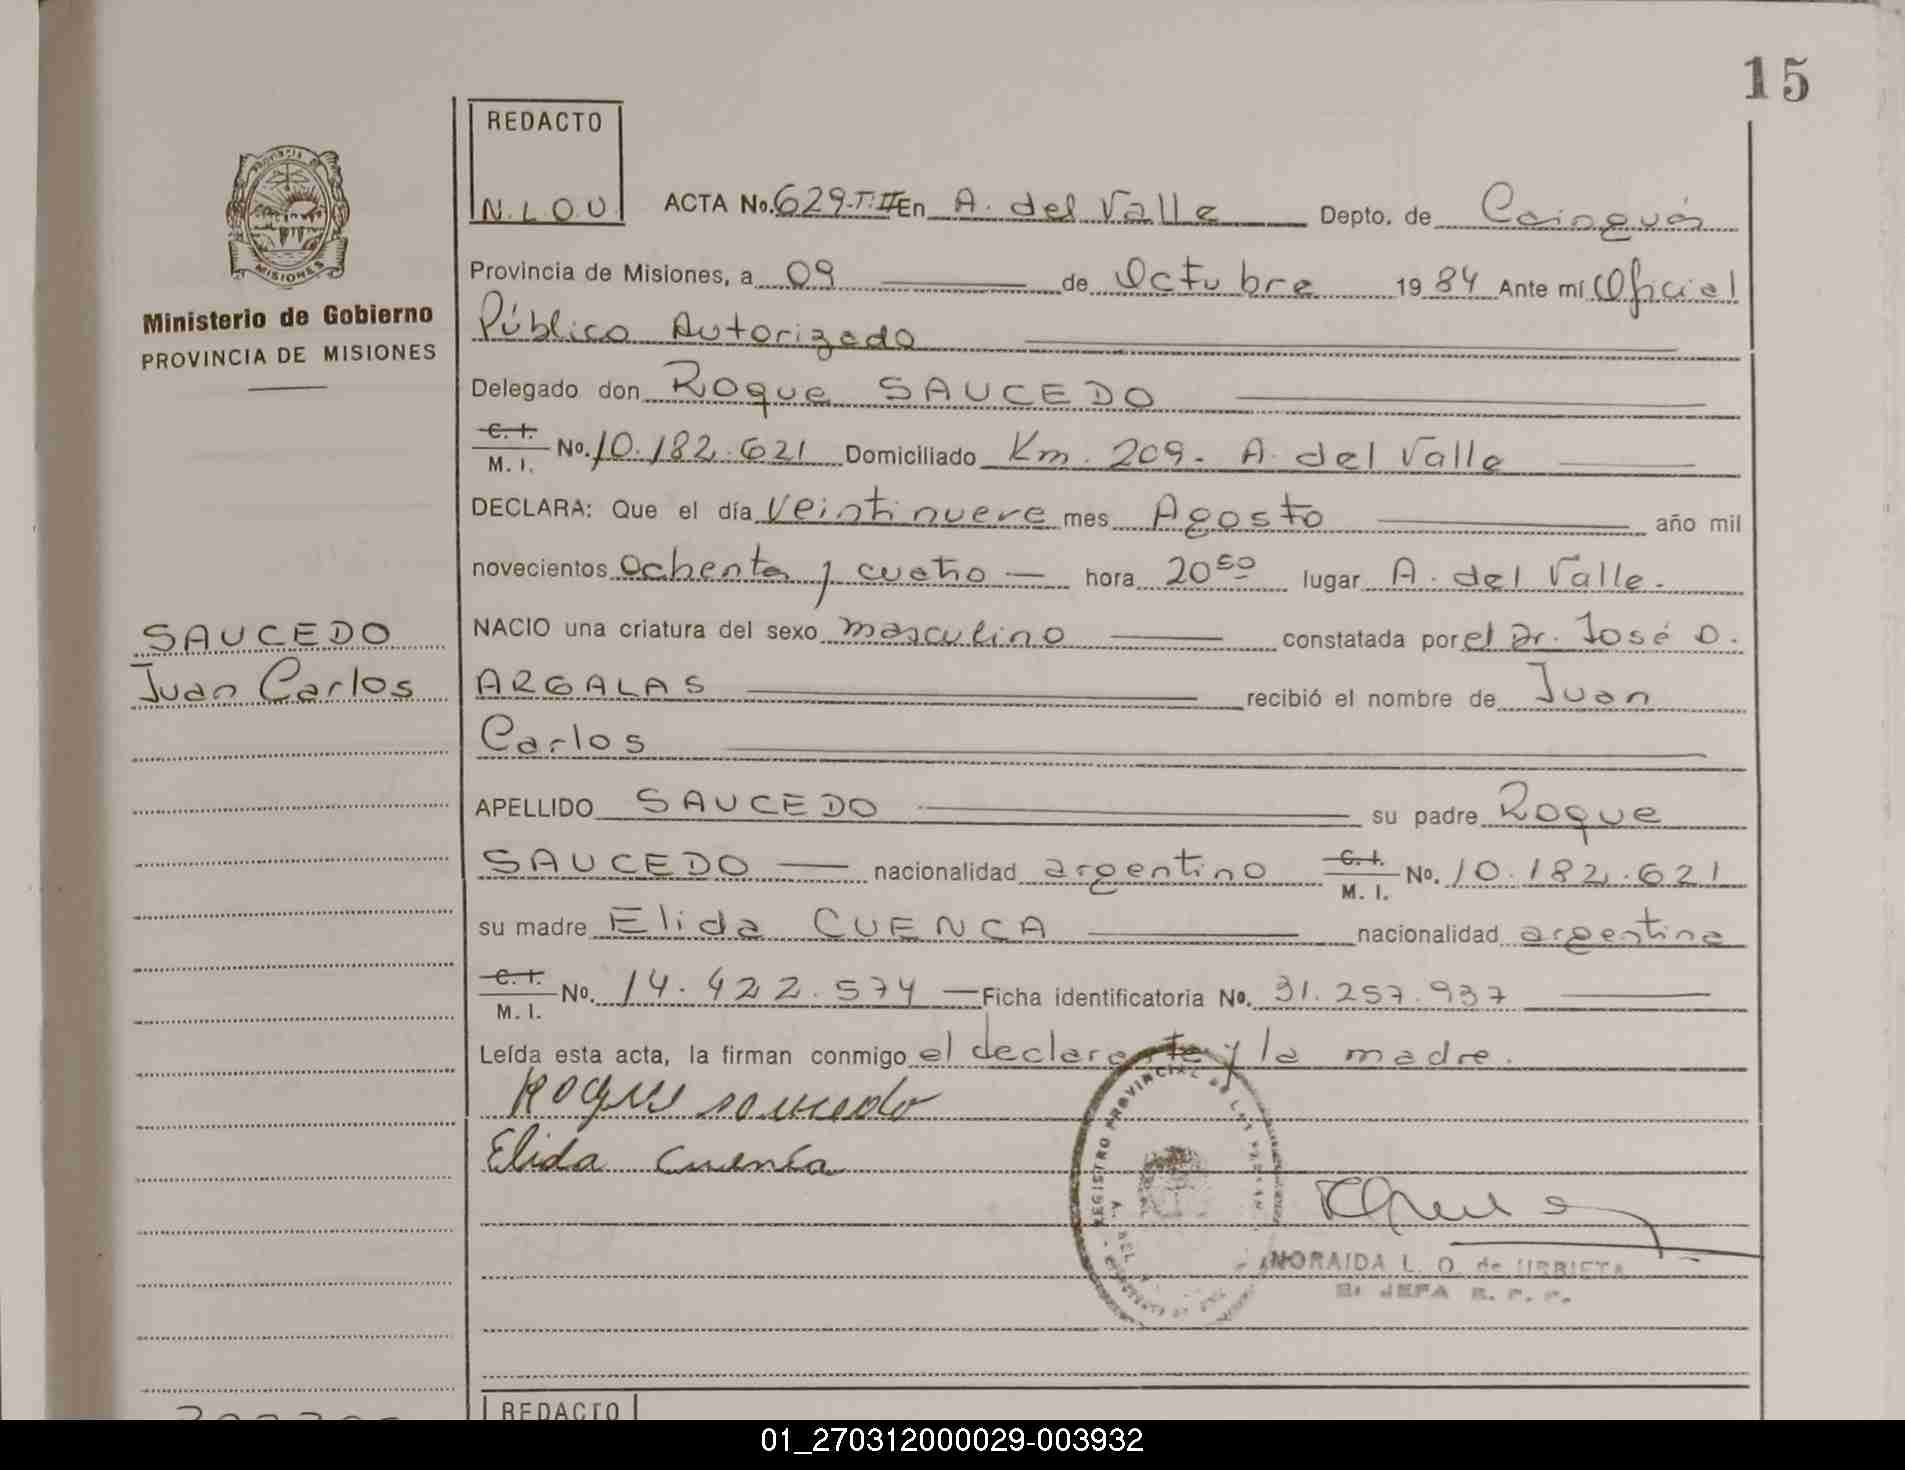 15
REDACTO
N.L.O.U.
ACTA No. 629-T:II En A. del Valle Depto. de Cainguás
MISIONES
Ministerio de Gobierno
PROVINCIA DE MISIONES
Provincia de Misiones, a 09 de Octubre 1984 Ante mí Oficial
Público Autorizado
Delegado don Roque SAUCEDO
C. I. M. I. No. 10.182.621 Domiciliado Km. 209. A. del Valle
DECLARA: Que el día veintinueve mes Agosto año mil
novecientos ochenta y cuatro hora 20 50 lugar A. del Valle.
SAUCEDO
Juan Carlos
NACIO una criatura del sexo masculino constatada por el Dr. José D.
ARGALAS recibió el nombre de Juan
Carlos
APELLIDO SAUCEDO su padre Roque
SAUCEDO nacionalidad argentino C. I. M. I. No. 10.182.621
su madre Elida CUENCA nacionalidad argentina
C. I. M. I. No. 14.422.574 Ficha identificatoria No. 31.257.937
Leída esta acta, la firman conmigo el declarante y la madre.
Roque saucedo
Elida Cuenca
REGISTRO PROVINCIAL DE LAS
NORAIDA L. O. de URBIETA
JEFA R. P. P.
REDACTO
01_270312000029-003932